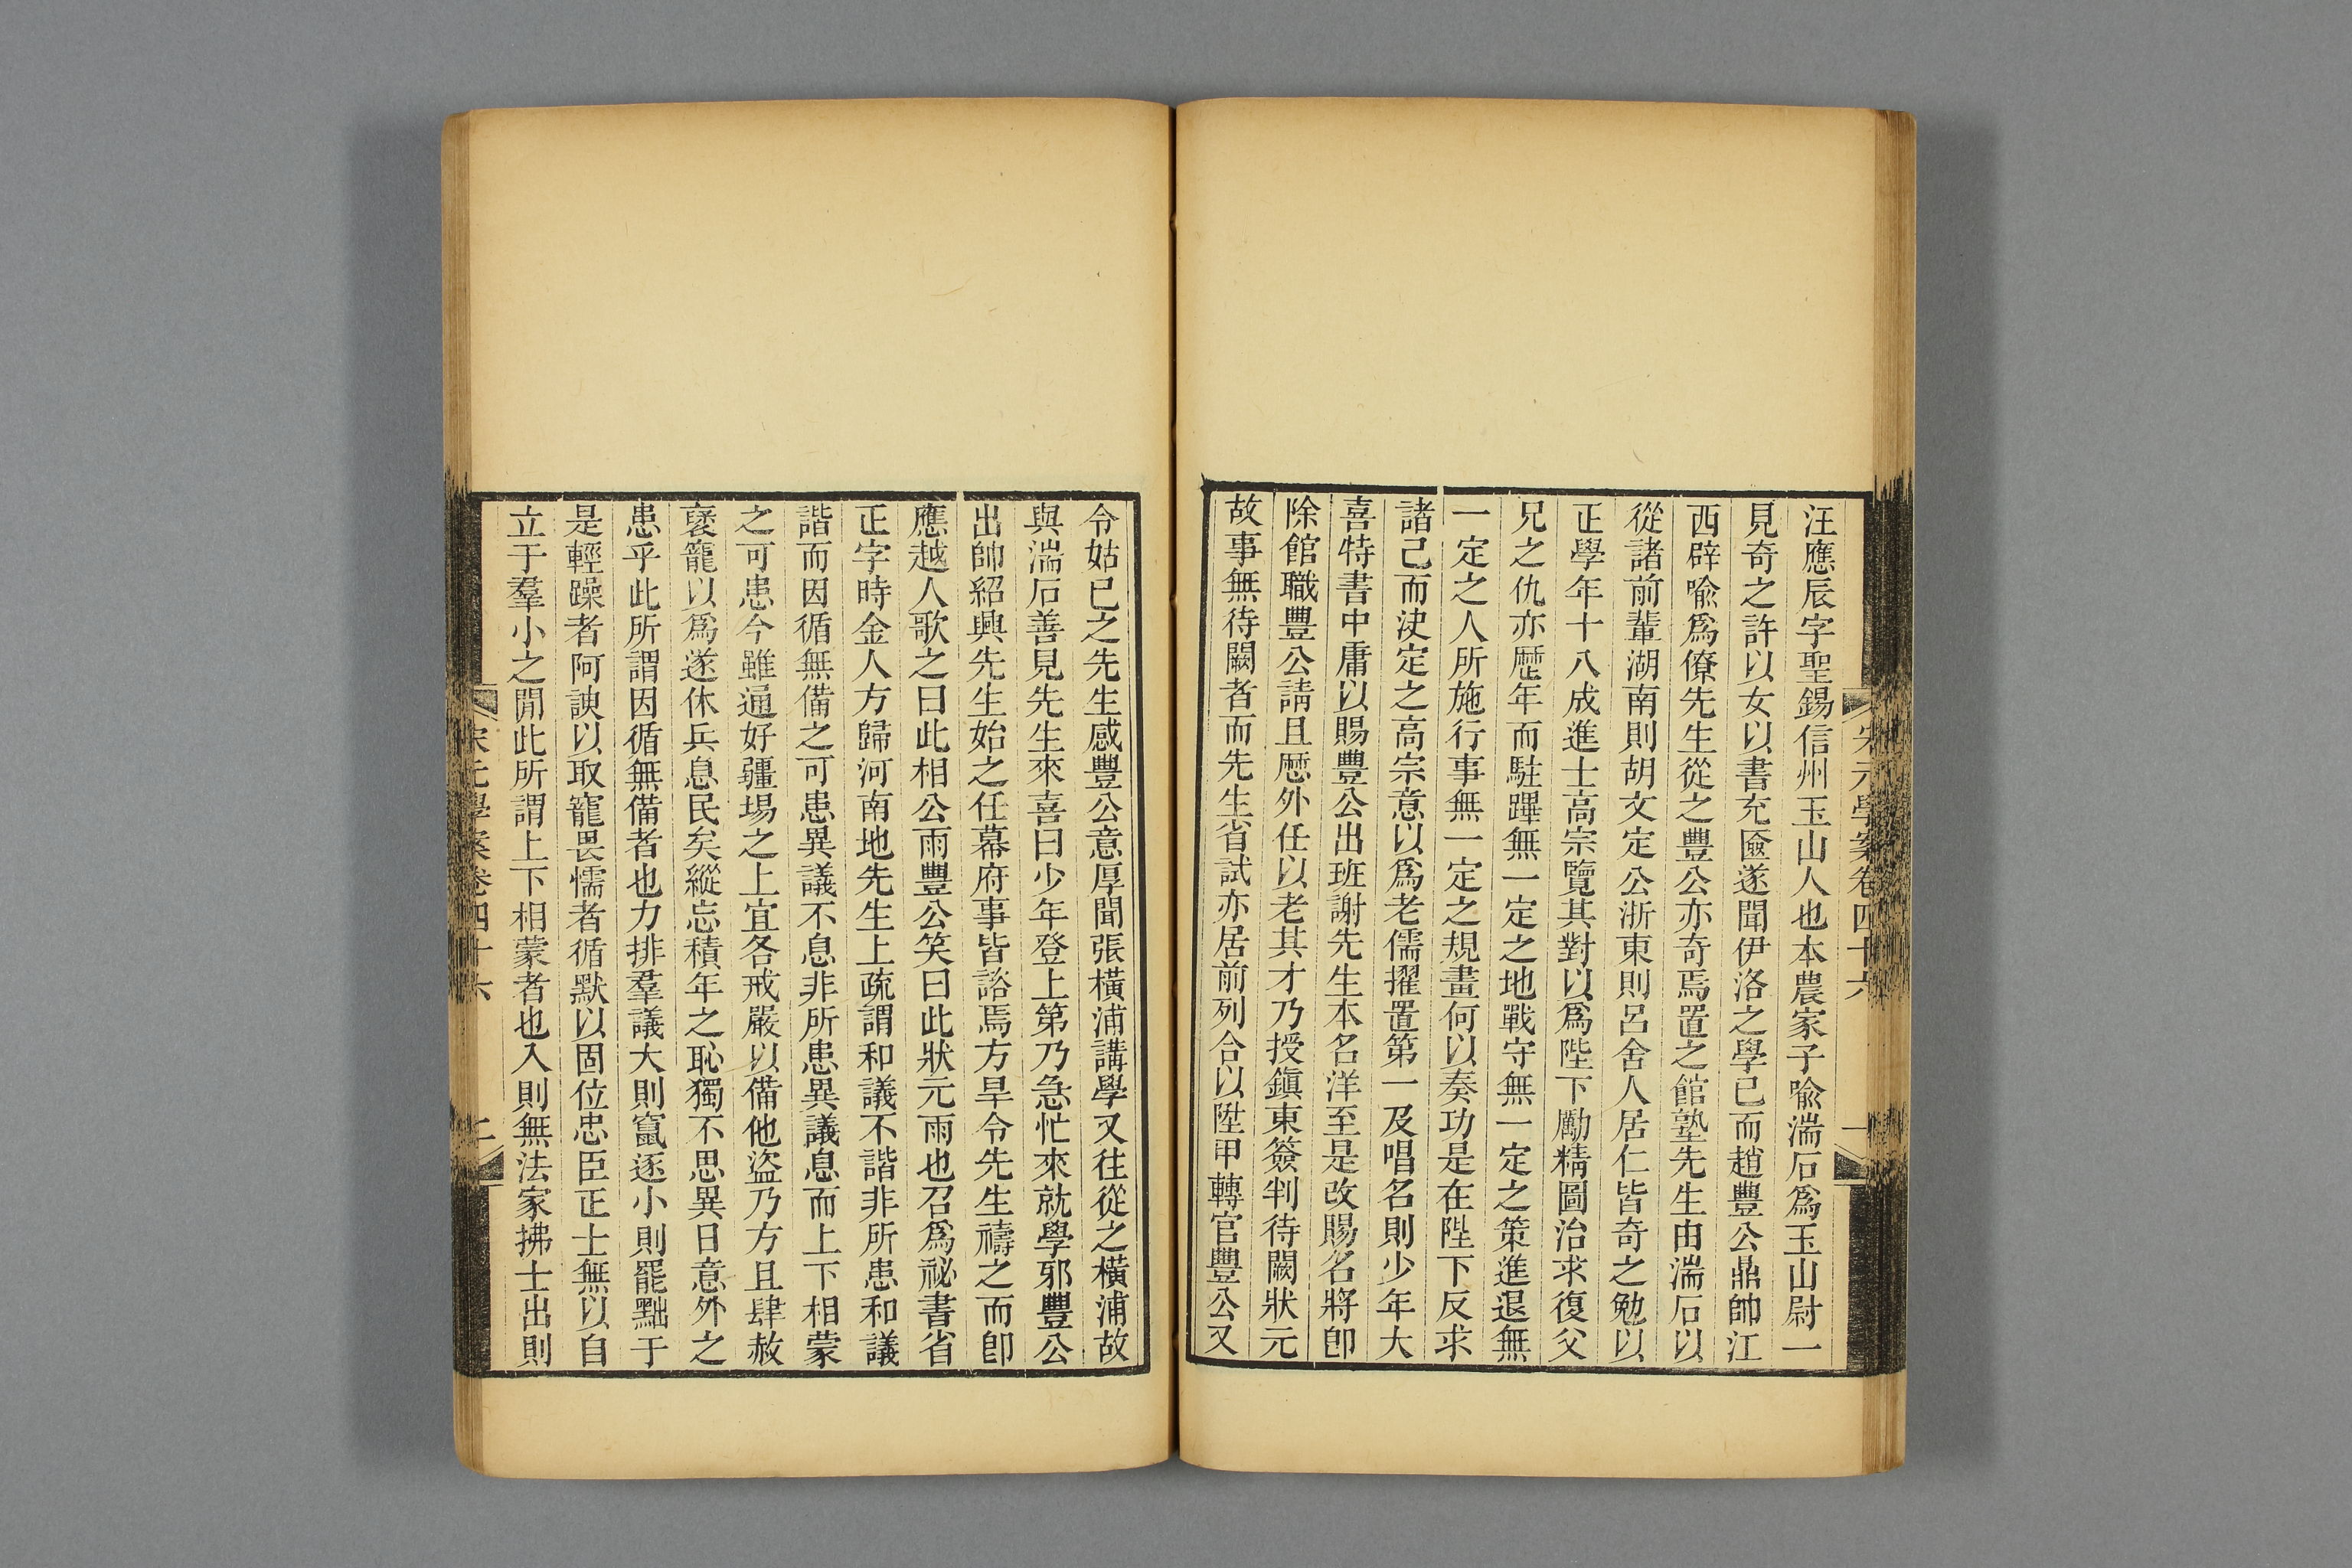 宋元學案卷四十六
一
汪應辰字聖錫信州玉山人也本農家子喩湍石爲玉山尉一
見奇之許以女以書充匳遂聞伊洛之學已而趙豐公鼎帥江
西辟喩爲僚先生從之豐公亦奇焉置之館塾先生由湍石以
從諸前輩湖南則胡文定公浙東則呂舍人居仁皆奇之勉以
正學年十八成進士高宗覽其對以爲陛下勵精圖治求復父
兄之仇亦歷年而駐蹕無一定之地戰守無一定之策進退無
一定之人所施行事無一定之規畫何以奏功是在陛下反求
諸己而決定之高宗意以爲老儒擢置第一及唱名則少年大
喜特書中庸以賜豐公出班謝先生本名洋至是改賜名將卽
除館職豐公請且歷外任以老其才乃授鎭東簽判待闕狀元
故事無待闕者而先生省試亦居前列合以陞甲轉官豐公又
令姑已之先生感豐公意厚聞張橫浦講學又往從之橫浦故
與湍石善見先生來喜曰少年登上第乃急忙來就學邪豐公
出帥紹興先生始之任幕府事皆諮焉方旱令先生禱之而卽
應越人歌之曰此相公雨豐公笑曰此狀元雨也召爲祕書省
正字時金人方歸河南地先生上疏謂和議不諧非所患和議
諧而因循無備之可患異議不息非所患異議息而上下相蒙
之可患今雖通好疆埸之上宜各戒嚴以備他盜乃方且肆赦
褒寵以爲遂休兵息民矣縱忘積年之恥獨不思異日意外之
患乎此所謂因循無備者也力排羣議大則竄逐小則罷黜于
是輕躁者阿諛以取寵畏懦者循默以固位忠臣正士無以自
立于羣小之閒此所謂上下相蒙者也入則無法家拂士出則
宋元學案卷四十六
二